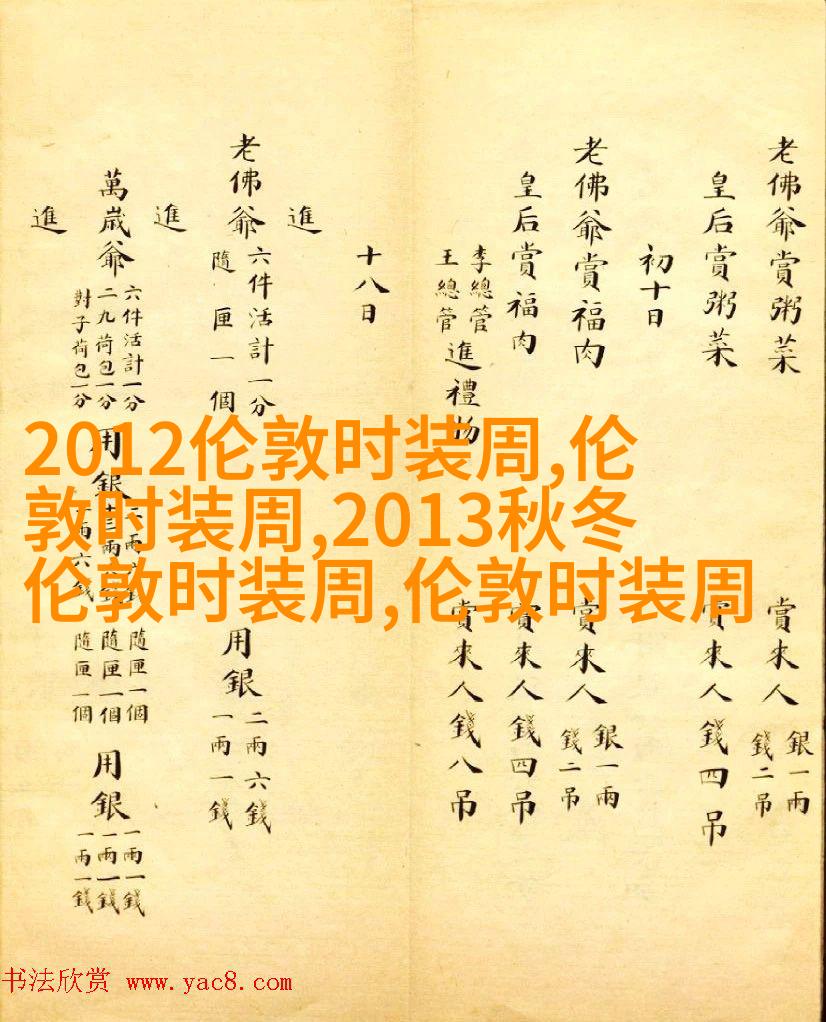 老佛爺賞粥菜 賞來人 銀一兩 錢二吊
皇后賞粥菜 賞來人錢四吊
初十日
老佛爺賞福肉 賞來人 銀一兩 錢二吊
皇后賞福肉 賞來人錢四吊
李總管 王總管 進禮物 賞來人錢八吊
十八日
進
老佛爺 六件活計一分 隨匣一個 用銀 二兩六錢 一兩一錢
進
萬歲爺 六件活計一分 二九荷包一分 對子荷包一分 用銀 隨匣一個 隨匣一個 隨匣一個 用銀 一兩一錢 一兩一錢 一兩一錢
進
2012伦敦时装周,伦
敦时装周,2013秋冬
伦敦时装周,伦敦时装周
书法欣赏 www.yac8.com